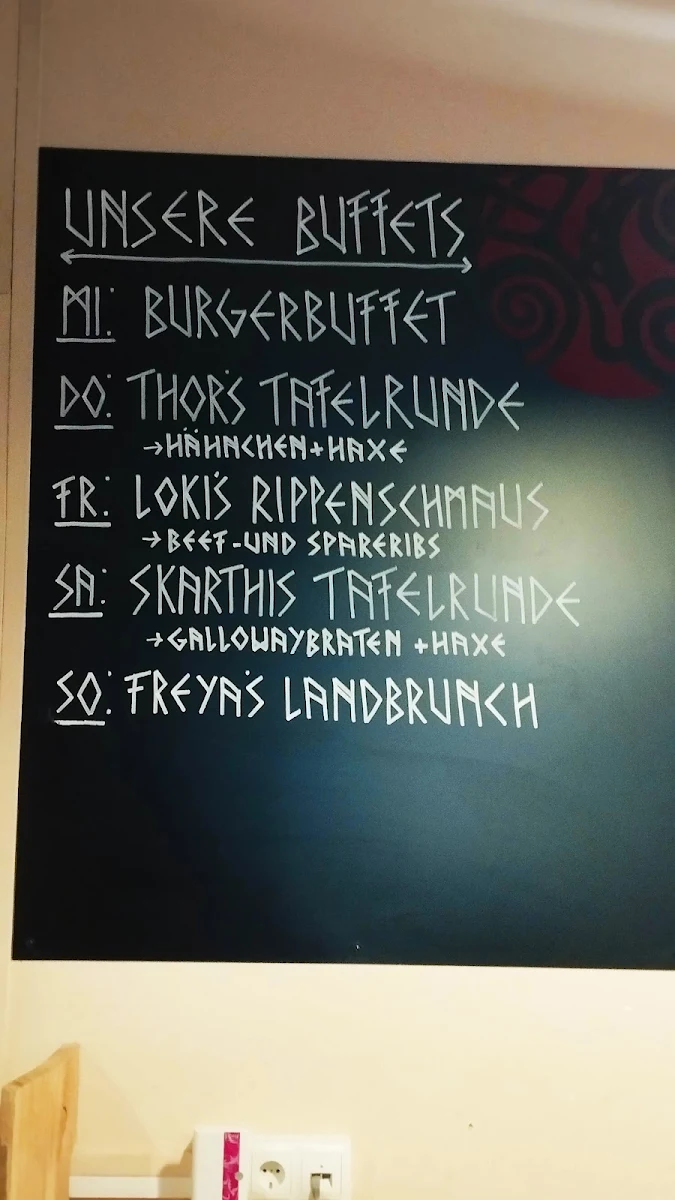 UNSERE BUFFETS
MI: BURGERBUFFET
DO: THOR'S TAFELRUNDE
→HÄHNCHEN+HAXE
FR: LOKI'S RIPPENSCHMAUS
→BEEF-UND SPARERIBS
SA: SKARTHIS TAFELRUNDE
→GALLOWAYBRATEN +HAXE
SO: FREYA'S LANDBRUNCH